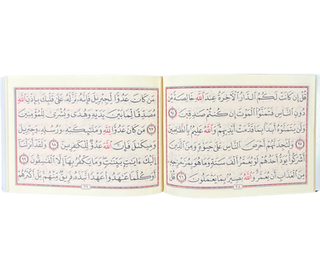 قُلْ إِن كَانَتْ لَكُمُ الدَّارُ الْآخِرَةُ عِندَ اللَّهِ خَالِصَةً مِّن
دُونِ النَّاسِ فَتَمَنَّوُا الْمَوْتَ إِن كُنتُمْ صَٰدِقِينَ ٩٤
وَلَن يَتَمَنَّوْهُ أَبَدًا بِمَا قَدَّمَتْ أَيْدِيهِمْ وَاللَّهُ عَلِيمٌ بِالظَّٰلِمِينَ
٩٥ وَلَتَجِدَنَّهُمْ أَحْرَصَ النَّاسِ عَلَىٰ حَيَوٰةٍ وَمِنَ الَّذِينَ
أَشْرَكُوا يَوَدُّ أَحَدُهُمْ لَوْ يُعَمَّرُ أَلْفَ سَنَةٍ وَمَا هُوَ بِمُزَحْزِحِهِ
مِنَ الْعَذَابِ أَن يُعَمَّرَ وَاللَّهُ بَصِيرٌ بِمَا يَعْمَلُونَ ٩٦ قُلْ
مَن كَانَ عَدُوًّا لِّجِبْرِيلَ فَإِنَّهُ نَزَّلَهُ عَلَىٰ قَلْبِكَ بِإِذْنِ اللَّهِ
مُصَدِّقًا لِّمَا بَيْنَ يَدَيْهِ وَهُدًى وَبُشْرَىٰ لِلْمُؤْمِنِينَ
٩٧ مَن كَانَ عَدُوًّا لِّلَّهِ وَمَلَٰئِكَتِهِ وَرُسُلِهِ وَجِبْرِيلَ
وَمِيكَىٰلَ فَإِنَّ اللَّهَ عَدُوٌّ لِّلْكَٰفِرِينَ ٩٨ وَلَقَدْ أَنزَلْنَا
إِلَيْكَ ءَايَٰتٍ بَيِّنَٰتٍ وَمَا يَكْفُرُ بِهَا إِلَّا الْفَٰسِقُونَ ٩٩
أَوَكُلَّمَا عَٰهَدُوا عَهْدًا نَّبَذَهُ فَرِيقٌ مِّنْهُم بَلْ أَكْثَرُهُمْ